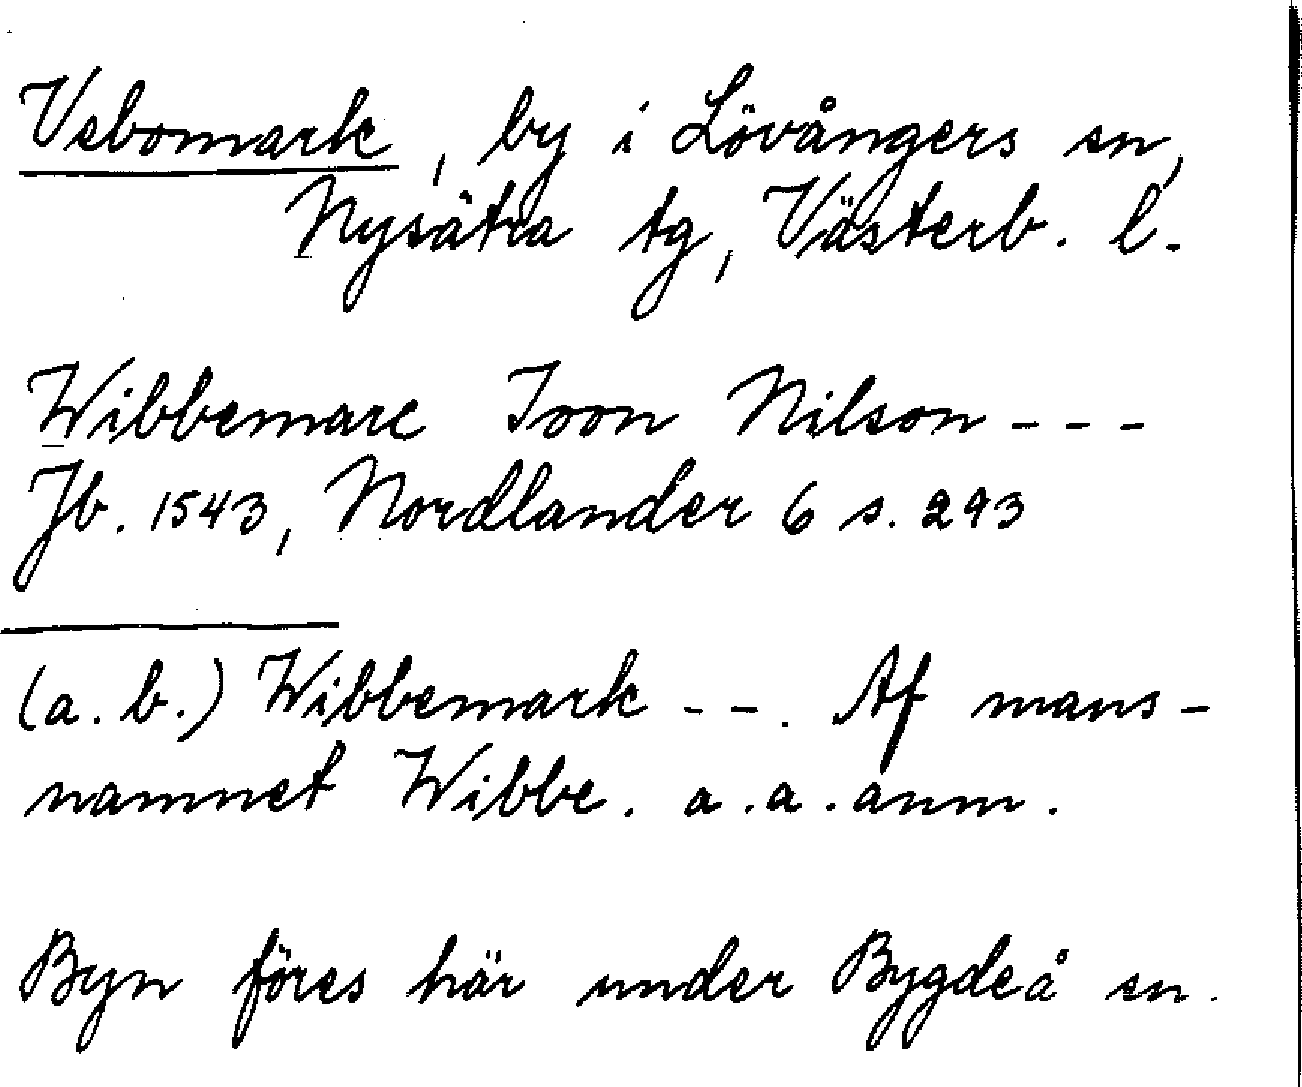 Vebomark, by i Lövångers sn,
Nysätra tg, Västerb. l.
Wibbemarc Joon Nilson - - -
Jb. 1543, Nordlander 6 s. 293
(a. b.) Wibbemark - -. Af mans-
namnet Wibbe. a. a. anm.
Byn föres här under Bygdeå sn.